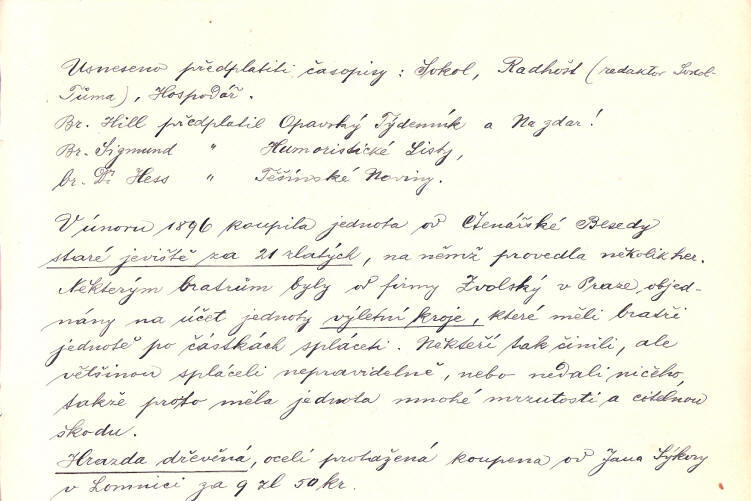 Usneseno předplatiti časopisy : Sokol, Radhošt (redaktor Svob-
Tůma), Hospodář.
Br. Hill předplatil Opavský Týdenník a Na zdar!
Br. Sigmund " Humoristické Listy,
br. Dr. Hess " Těšínské Noviny.
V únoru 1896 koupila jednota od Čtenářské Besedy
staré jeviště za 21 zlatých, na němž provedla několik her.
Některým bratrům byly od firmy Zvolský v Praze objed-
nány na účet jednoty výletní kroje, které měli bratři
jednotě po částkách spláceti. Někteří tak činili, ale
většinou spláceli nepravidelně, nebo nedali ničeho,
takže proto měla jednota mnohé mrzutosti a citelnou
škodu.
Hrazda dřevěná, ocelí protažená koupena od Jana Sýkory
v Lomnici za 9 zl 50 kr.